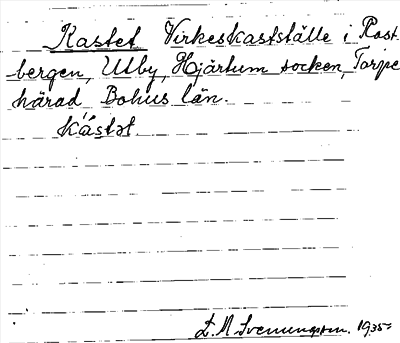 Kastet Virkeskastställe i Rost-
bergen, Utby, Hjärtum socken, Torpe
härad Bohus län.
kástət
E. M Svenungsson. 1935